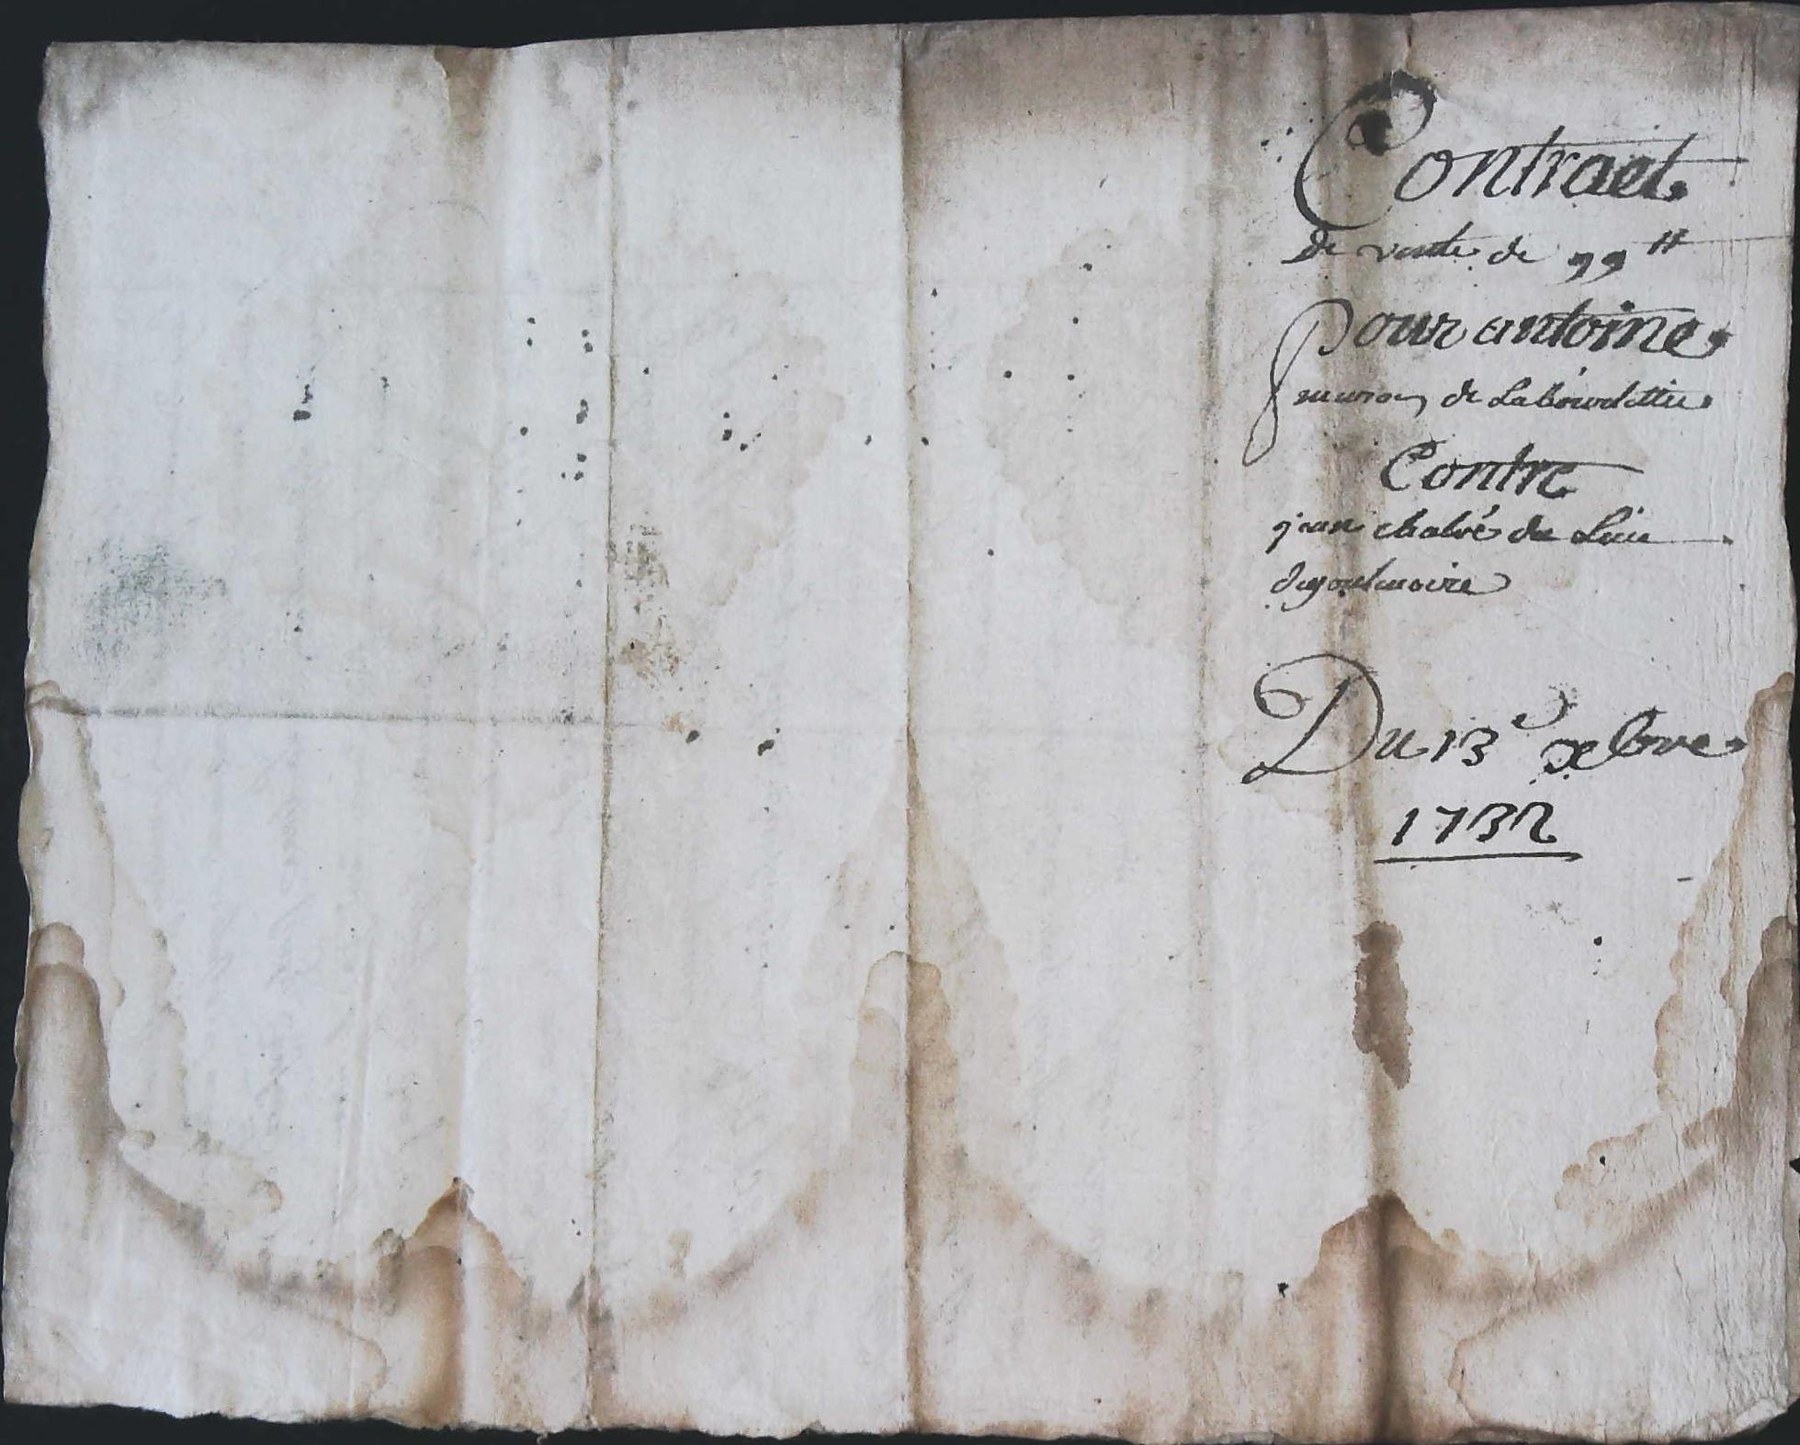 Contract
de vente de 99 ₶
pour antoine
de Labourdettie
Contre
jean chalvé du Lieu

Du 13e xbre
1732